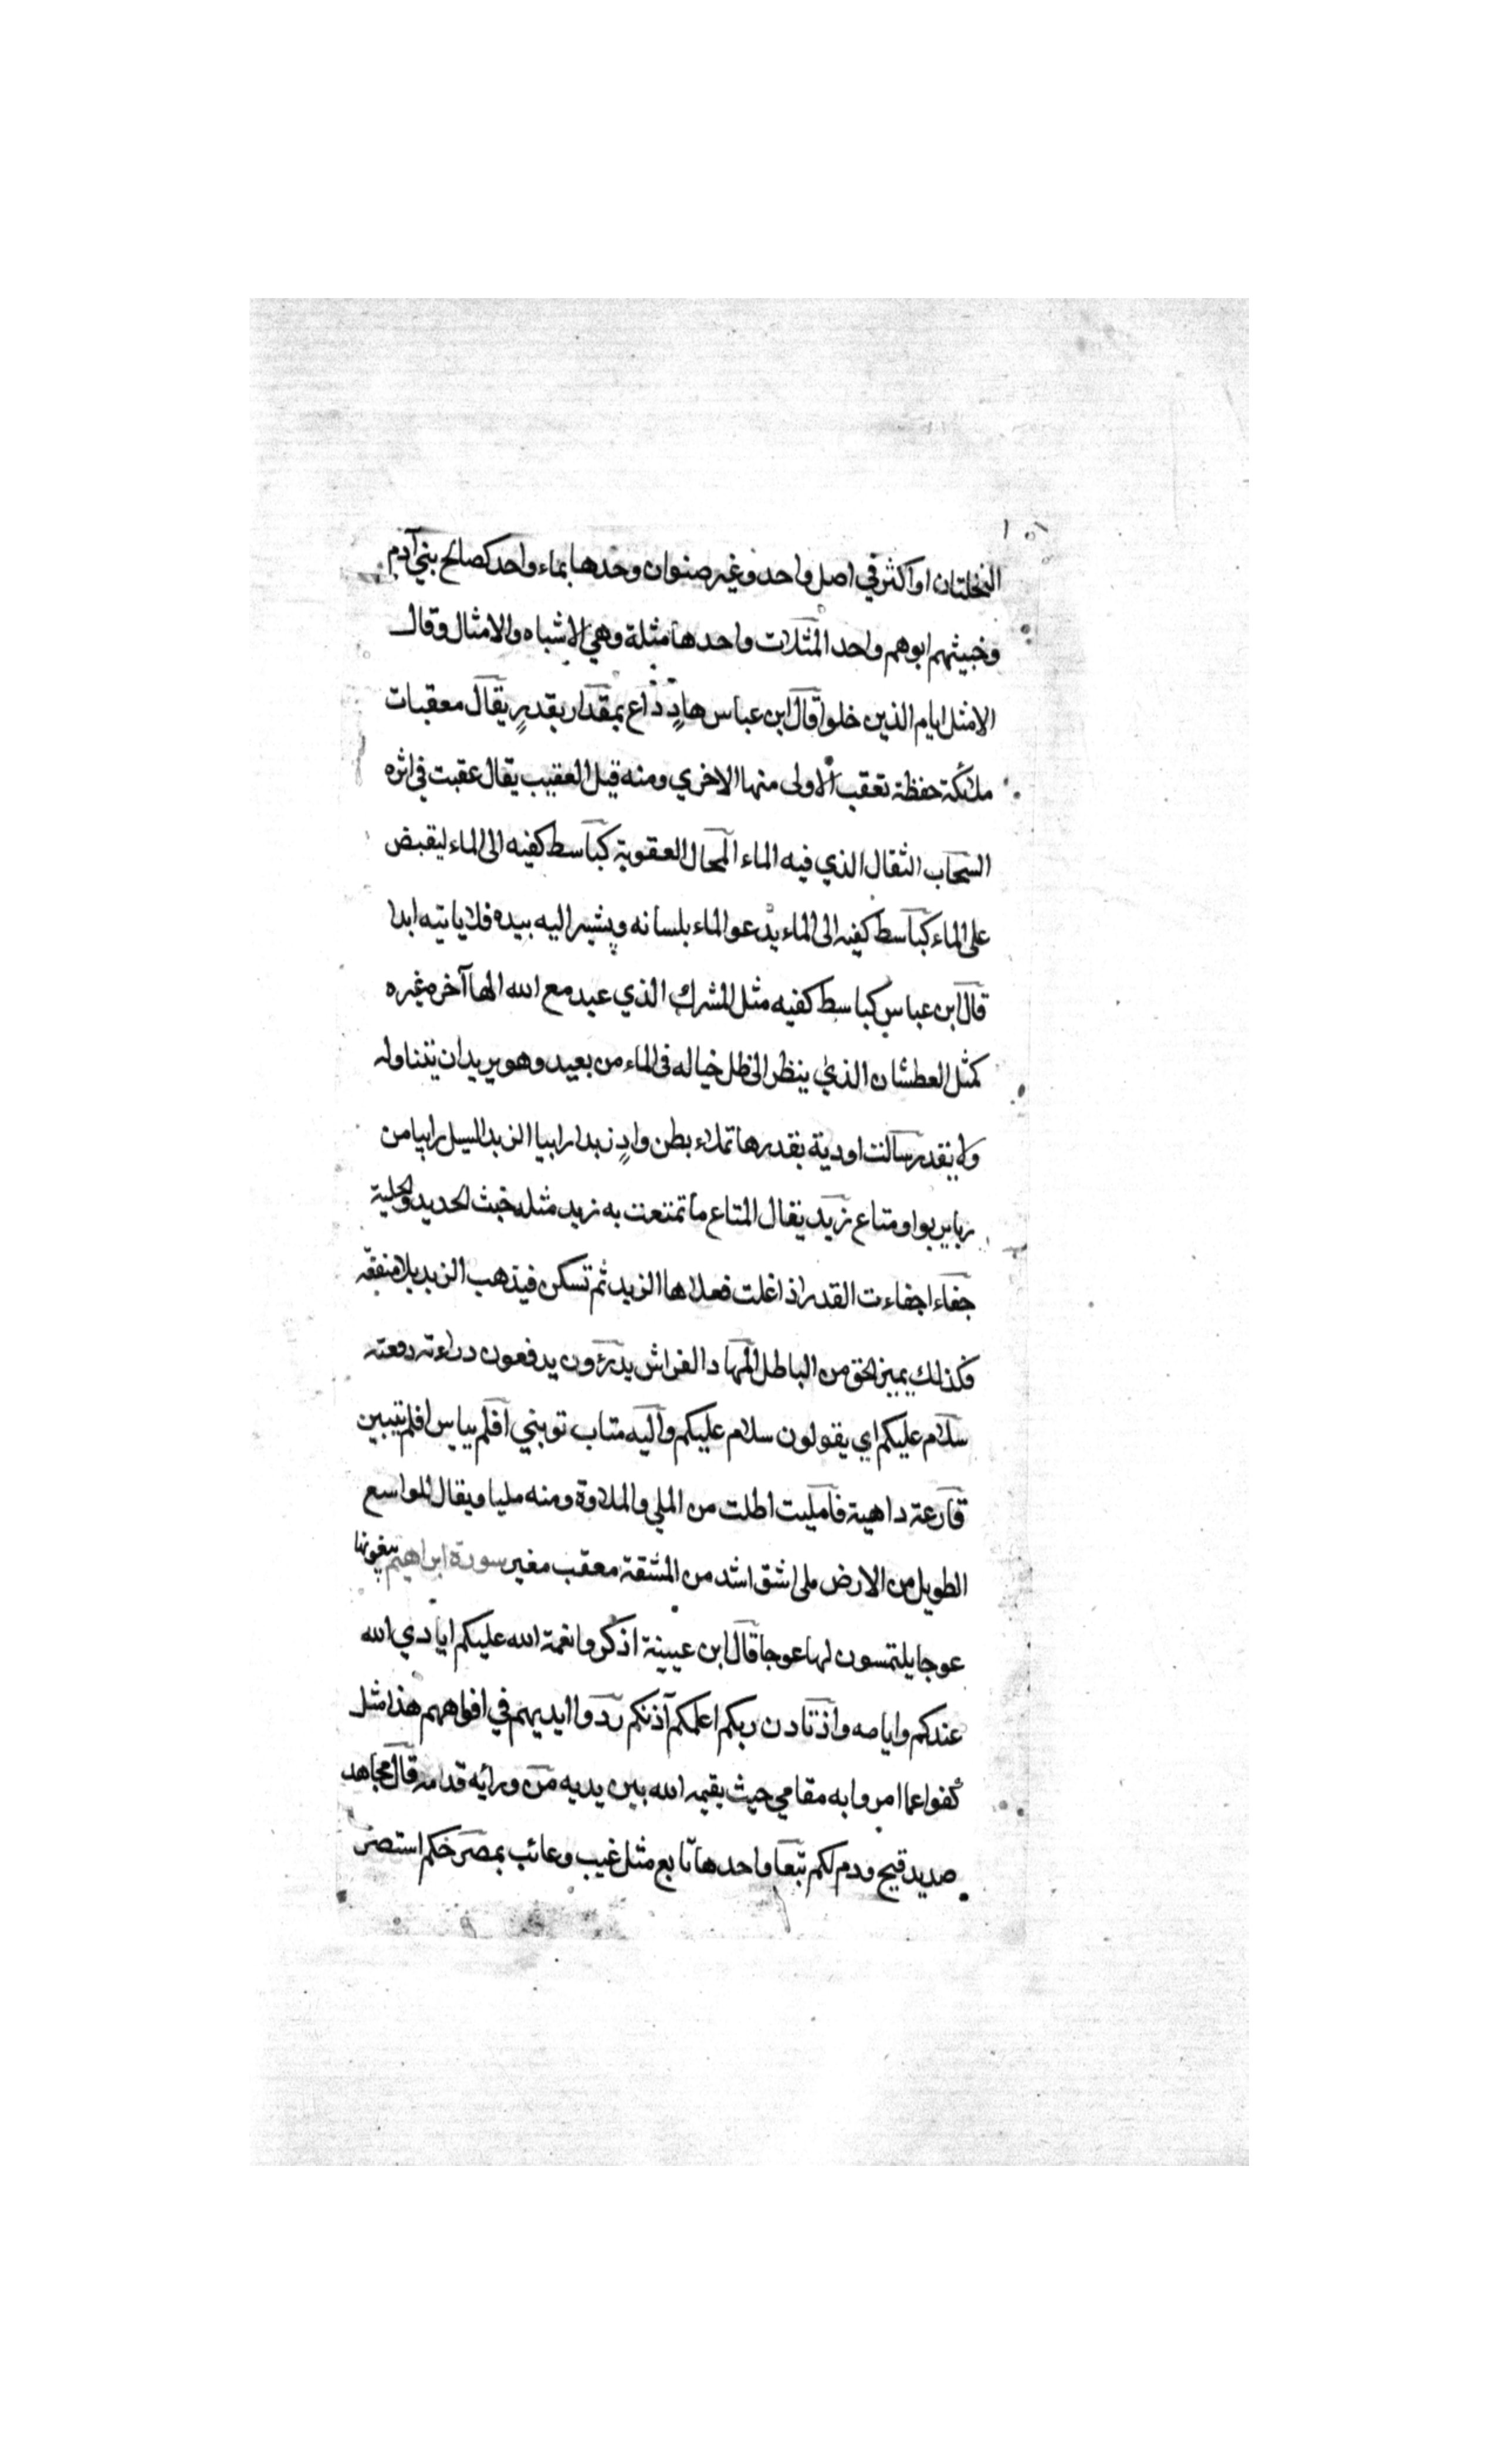 النخلتان او اكثر في اصل واحد وغير صنوان وحدها بماء واحد كصالح بني آدم
وخبيثهم ابوهم واحد المثلات واحدها مثلة وهي الاشباه والامثال وقال
الا مثل ايام الذين خلوا قال ابن عباس هادٍ داع بمقدار بقدرٍ يقال معقبات
ملائكة حفظة تعقب الاولى منها الاخري ومنه قيل العقيب يقال عقبت في اثره
السحاب الثقال الذي فيه الماء المحال العقوبة كباسط كفيه الى الماء ليقبض
على الماء كباسط كفيه الى الماء يدعو الماء بلسانه ويشير اليه بيده فلا ياتيه ابدا
قال ابن عباس كباسط كفيه مثل المشرك الذي عبد مع الله الها آخر غيره
كمثل العطشان الذي ينظر الى ظل خياله في الماء من بعيد وهو يريد ان يتناوله
ولا يقدر سالت اودية بقدرها تملاء بطن وادٍ زبدا رابيا الزبد السيل رابيا من
ربا يربوا ومتاع زبد يقال المتاع ما تمتعت به زبد مثله خبث الحديد والحلية
جفاء اجفاءت القدر اذا غلت فعلاها الزبد ثم تسكن فيذهب الزبد بلا منفعة
فكذلك يميز الحق من الباطل المهاد الفراش يدرؤون يدفعون دراءته دفعته
سلام عليكم اي يقولون سلام عليكم واليه متاب توبتي افلم ييأس افلم يتبين
قارعة داهية فامليت اطلت من الملي والملاوة ومنه مليا ويقال للواسع
الطويل من الارض ملى اشق اشد من المشقة معقب مغير سورة ابراهيم يبغونها
عوجا يلتمسون لها عوجا قال ابن عيينة اذكروا نعمة الله عليكم ايادي الله
عندكم وايامه واذ تاذن ربكم اعلمكم آذنكم ردوا ايديهم في افواههم هذا مثل
كفوا عما امروا به مقامي حيث يقيمه الله بين يديه من ورائه قدامه قال مجاهد
صديد قيح ودم لكم تبعا واحدها تابع مثل غيب وغائب بمصرخكم استصر